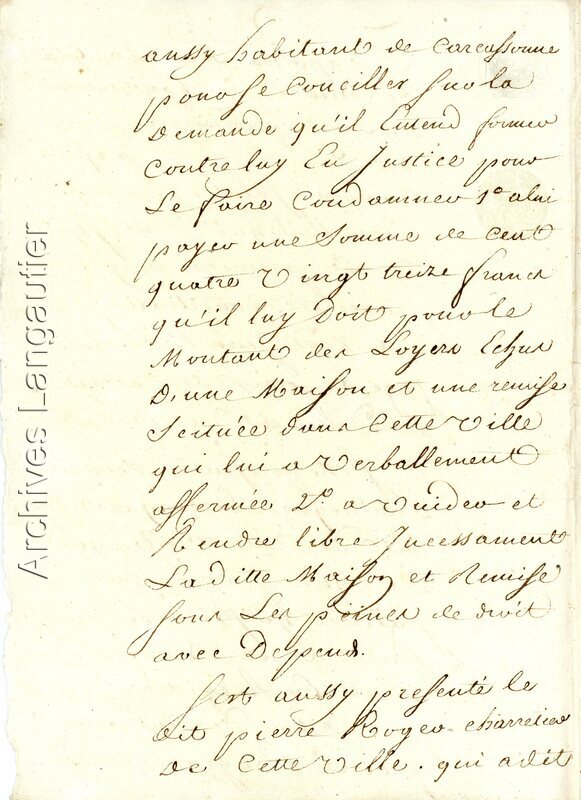 aussy habitant de Carcassonne
pour se Conciller sur la
Demande qu'il Entend former
Contre luy En Justice pour
Le faire Condamner 1° a lui
payer une Somme de Cent
quatre Vingt treize francs
qu'il luy Doit pour le
Montant des Loyers Echus
D'une Maison et une remise
Scituée dans Cette Ville
qui lui a Verballement
affermée 2° a Vuider et
Rendre libre Incessament
Laditte Maison et Remise
sous Les peines de droit
avec Depends.
sest aussy presenté le
dit pierre Roger charretier
de Cette Ville. qui a dit
Archives Langautier